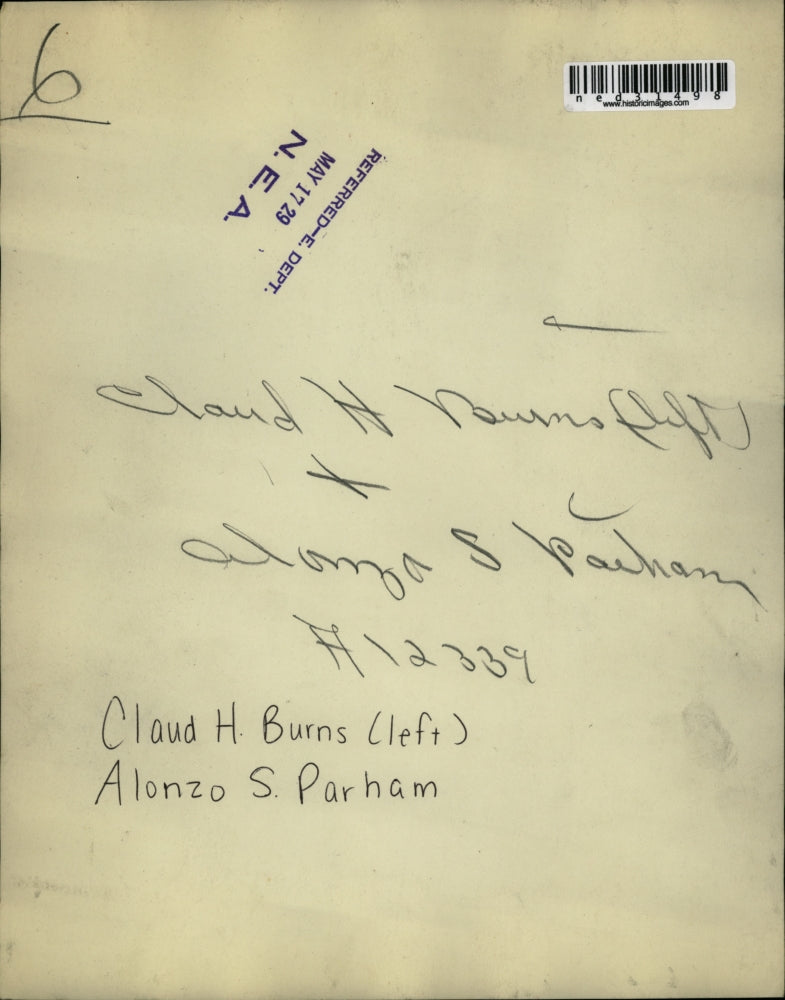 6
ned31498
www.historicimages.com
REFERRED-E. DEPT.
MAY 17 29
N. E. A.
Claud H Burns (left)
+
Alonzo S Parham
H12339
Claud H. Burns (left)
Alonzo S. Parham